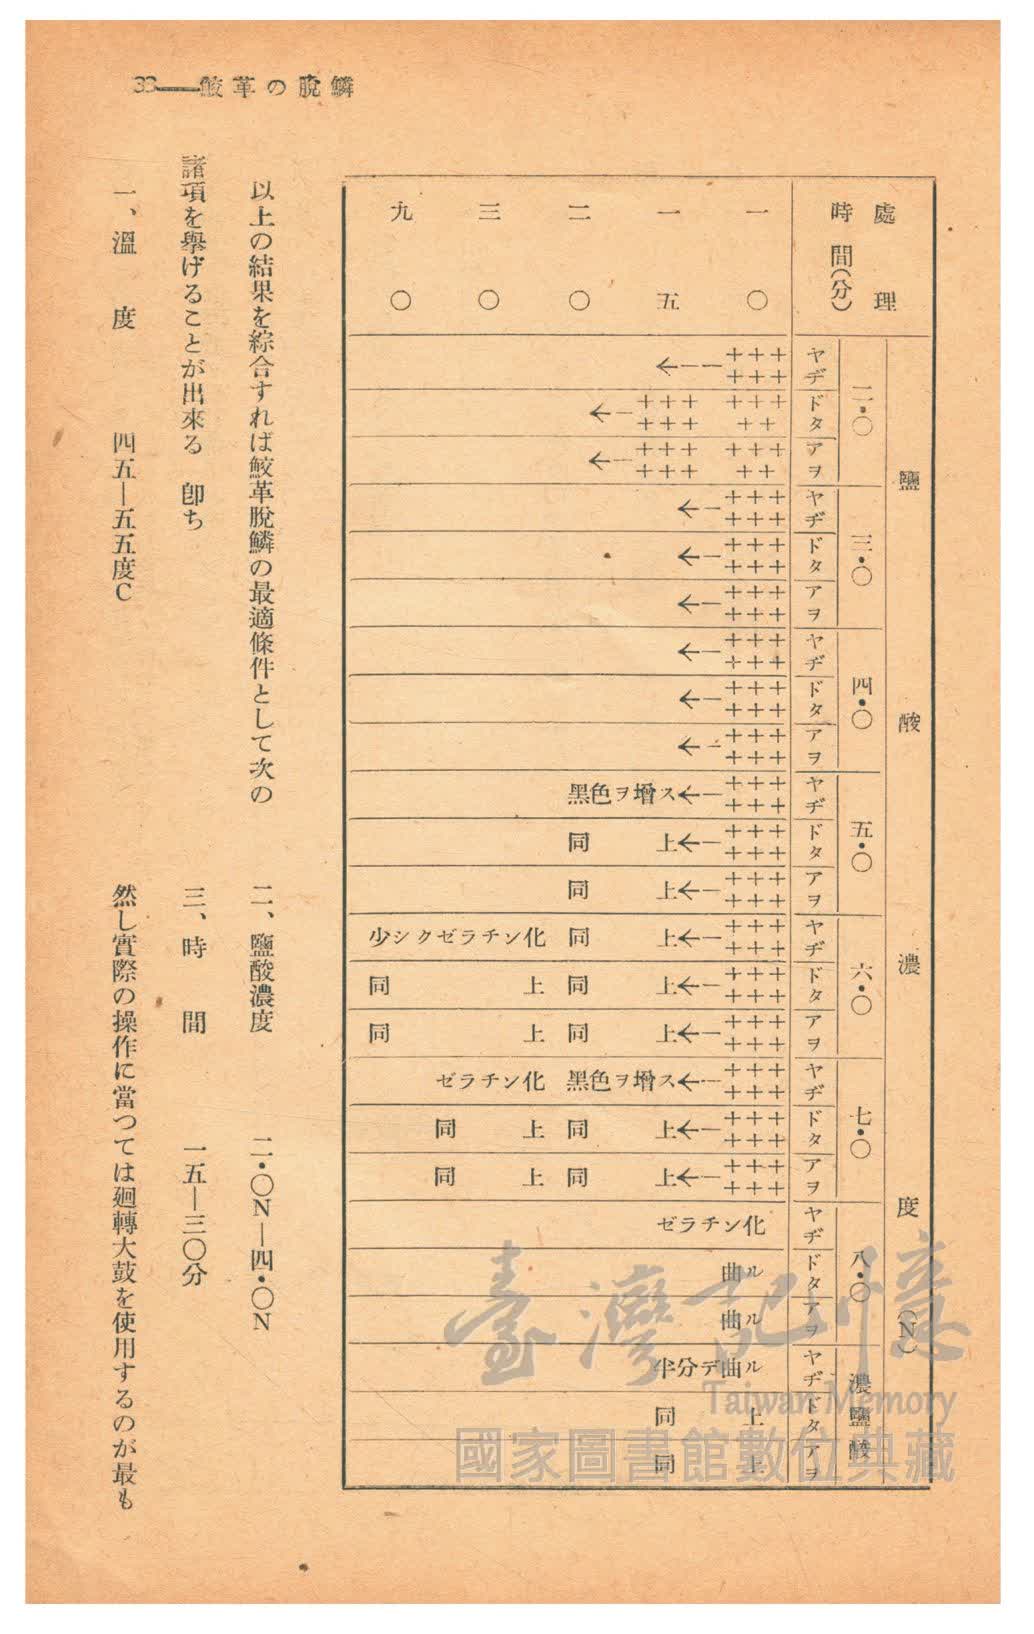 33——鮫革の脫鱗
處理
時間(分)
一〇
一五
二〇
三〇
九〇
鹽酸濃度(N)
二・〇
ヤヂ +++ +++ ←
ドタ +++ ++ +++ +++ ←
アヲ +++ ++ +++ +++ ←
三・〇
ヤヂ +++ +++ ←
ドタ +++ +++ ←
アヲ +++ +++ ←
四・〇
ヤヂ +++ +++ ←
ドタ +++ +++ ←
アヲ +++ +++ ←
五・〇
ヤヂ +++ +++ ← 黑色ヲ增ス
ドタ +++ +++ ← 同上
アヲ +++ +++ ← 同上
六・〇
ヤヂ +++ +++ ← 同上 少シクゼラチン化
ドタ +++ +++ ← 同上 同上
アヲ +++ +++ ← 同上 同上
七・〇
ヤヂ +++ +++ ← 黑色ヲ增ス ゼラチン化
ドタ +++ +++ ← 同上 同上
アヲ +++ +++ ← 同上 同上
八・〇
ヤヂ ゼラチン化
ドタ 曲ル
アヲ 曲ル
濃鹽酸
ヤヂ 半分デ曲ル
ドタ 同上
アヲ 同上
以上の結果を綜合すれば鮫革脫鱗の最適條件として次の
諸項を擧げることが出來る 卽ち
一、溫度 四五—五五度C
二、鹽酸濃度 二・〇N—四・〇N
三、時間 一五—三〇分
然し實際の操作に當つては廻轉大鼓を使用するのが最も
臺灣記憶
Taiwan Memory
國家圖書館數位典藏